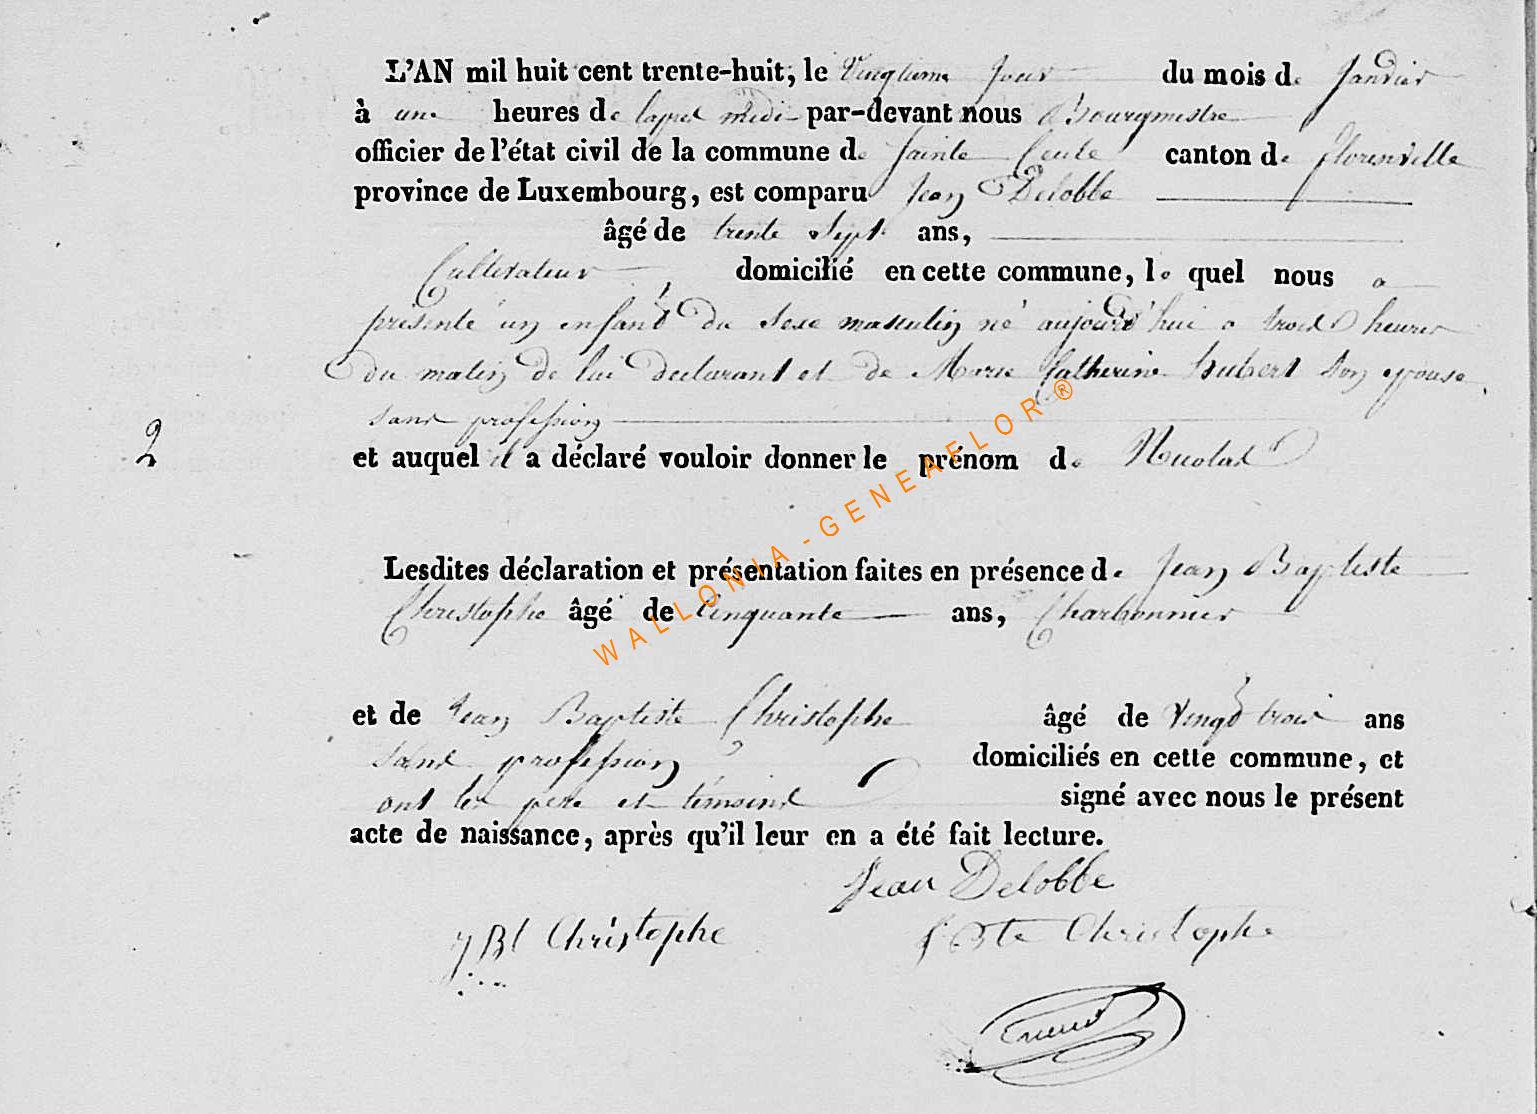 L'AN mil huit cent trente-huit, le Vingtieme jour du mois de Janvier
à une heures de lapres midi par-devant nous Bourgmestre
officier de l'état civil de la commune de Sainte Cecile canton de florenville
province de Luxembourg, est comparu Jean Delobbe
âgé de trente Sept ans,
Cultivateur domicilié en cette commune, le quel nous a
présenté un enfant du sexe masculin né aujourd'hui a trois heures
du matin de lui declarant et de Marie Catherine hubert Son epouse
sans profession
2 et auquel il a déclaré vouloir donner le prénom de Nicolas
WALLONIA - GENEAFLOR ®
Lesdites déclaration et présentation faites en présence de Jean Baptiste
Christophe âgé de Cinquante ans, Charbonnier
et de Jean Baptiste Christophe âgé de Vingt trois ans
sans profession domiciliés en cette commune, et
ont les pere et témoins signé avec nous le présent
acte de naissance, après qu'il leur en a été fait lecture.
Jean Delobbe
J Bt Christophe J Bte Christophe